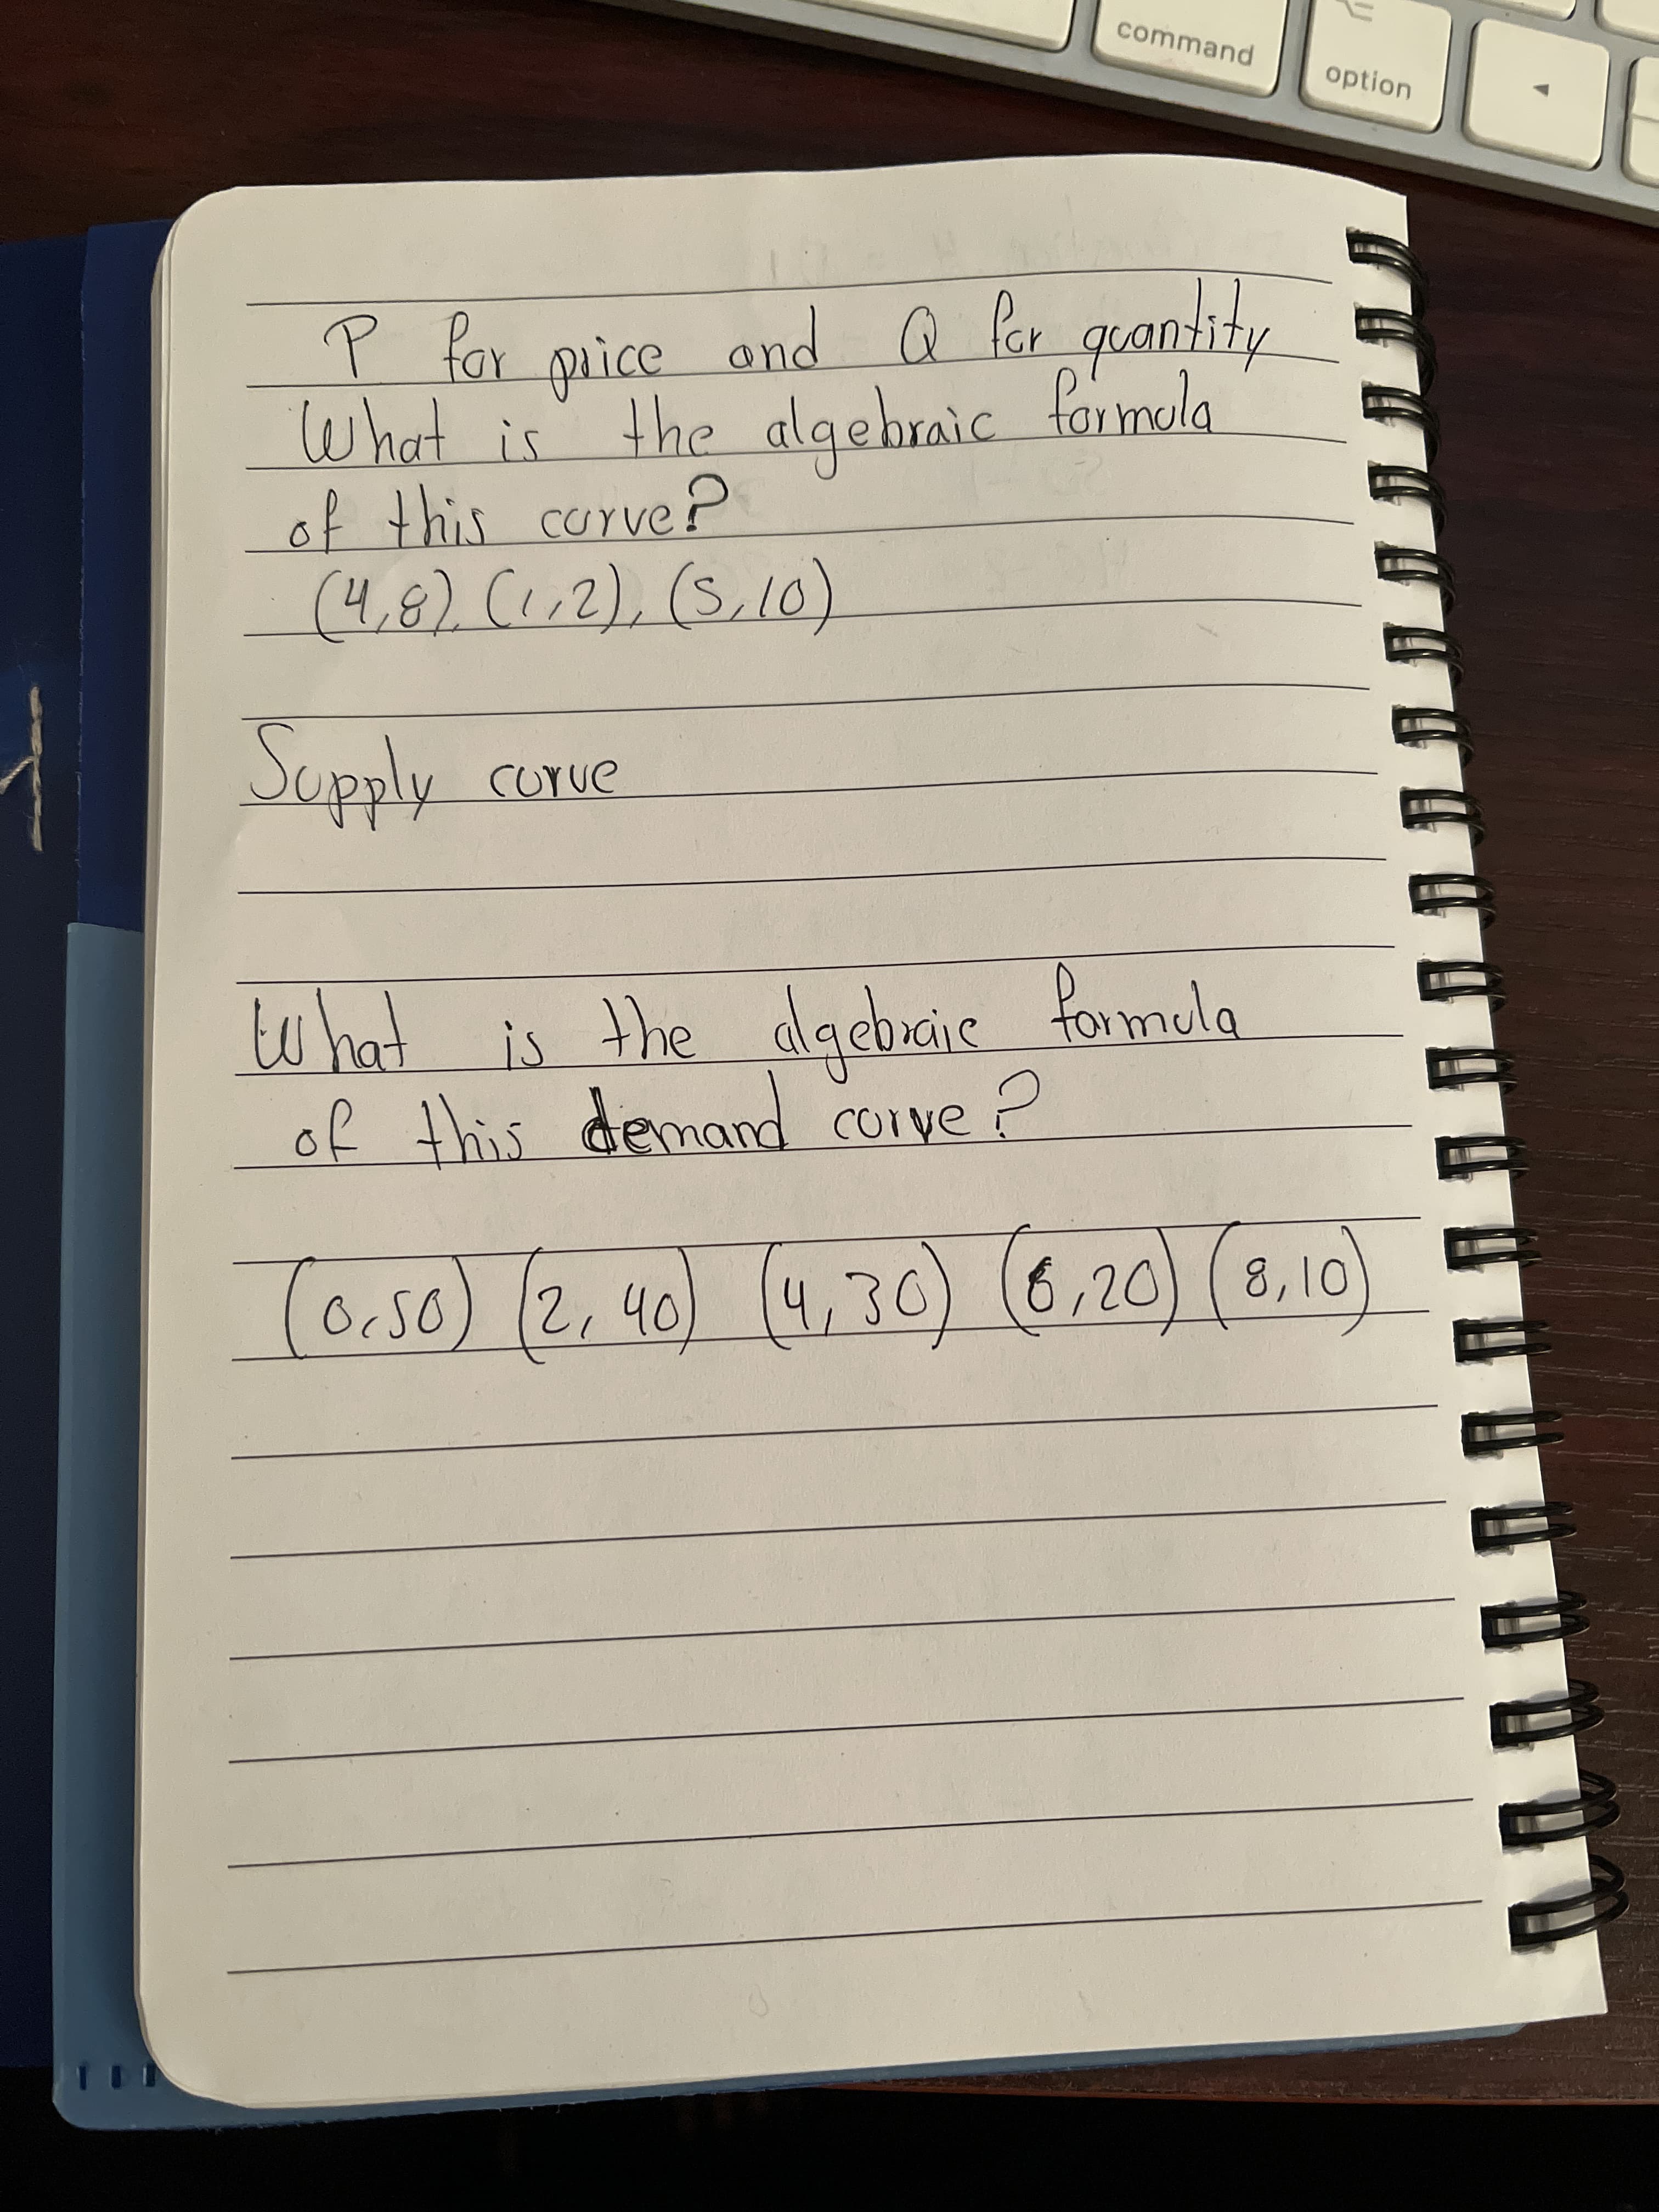 command
option
P for price and Q for quantity
What is the algebraic formula
of this curve?
(4,8), (1,2), (5,10)
Supply curve
What is the algebraic formula
of this demand curve?
(0,50) (2,40) (4,30) (6,20) (8,10)